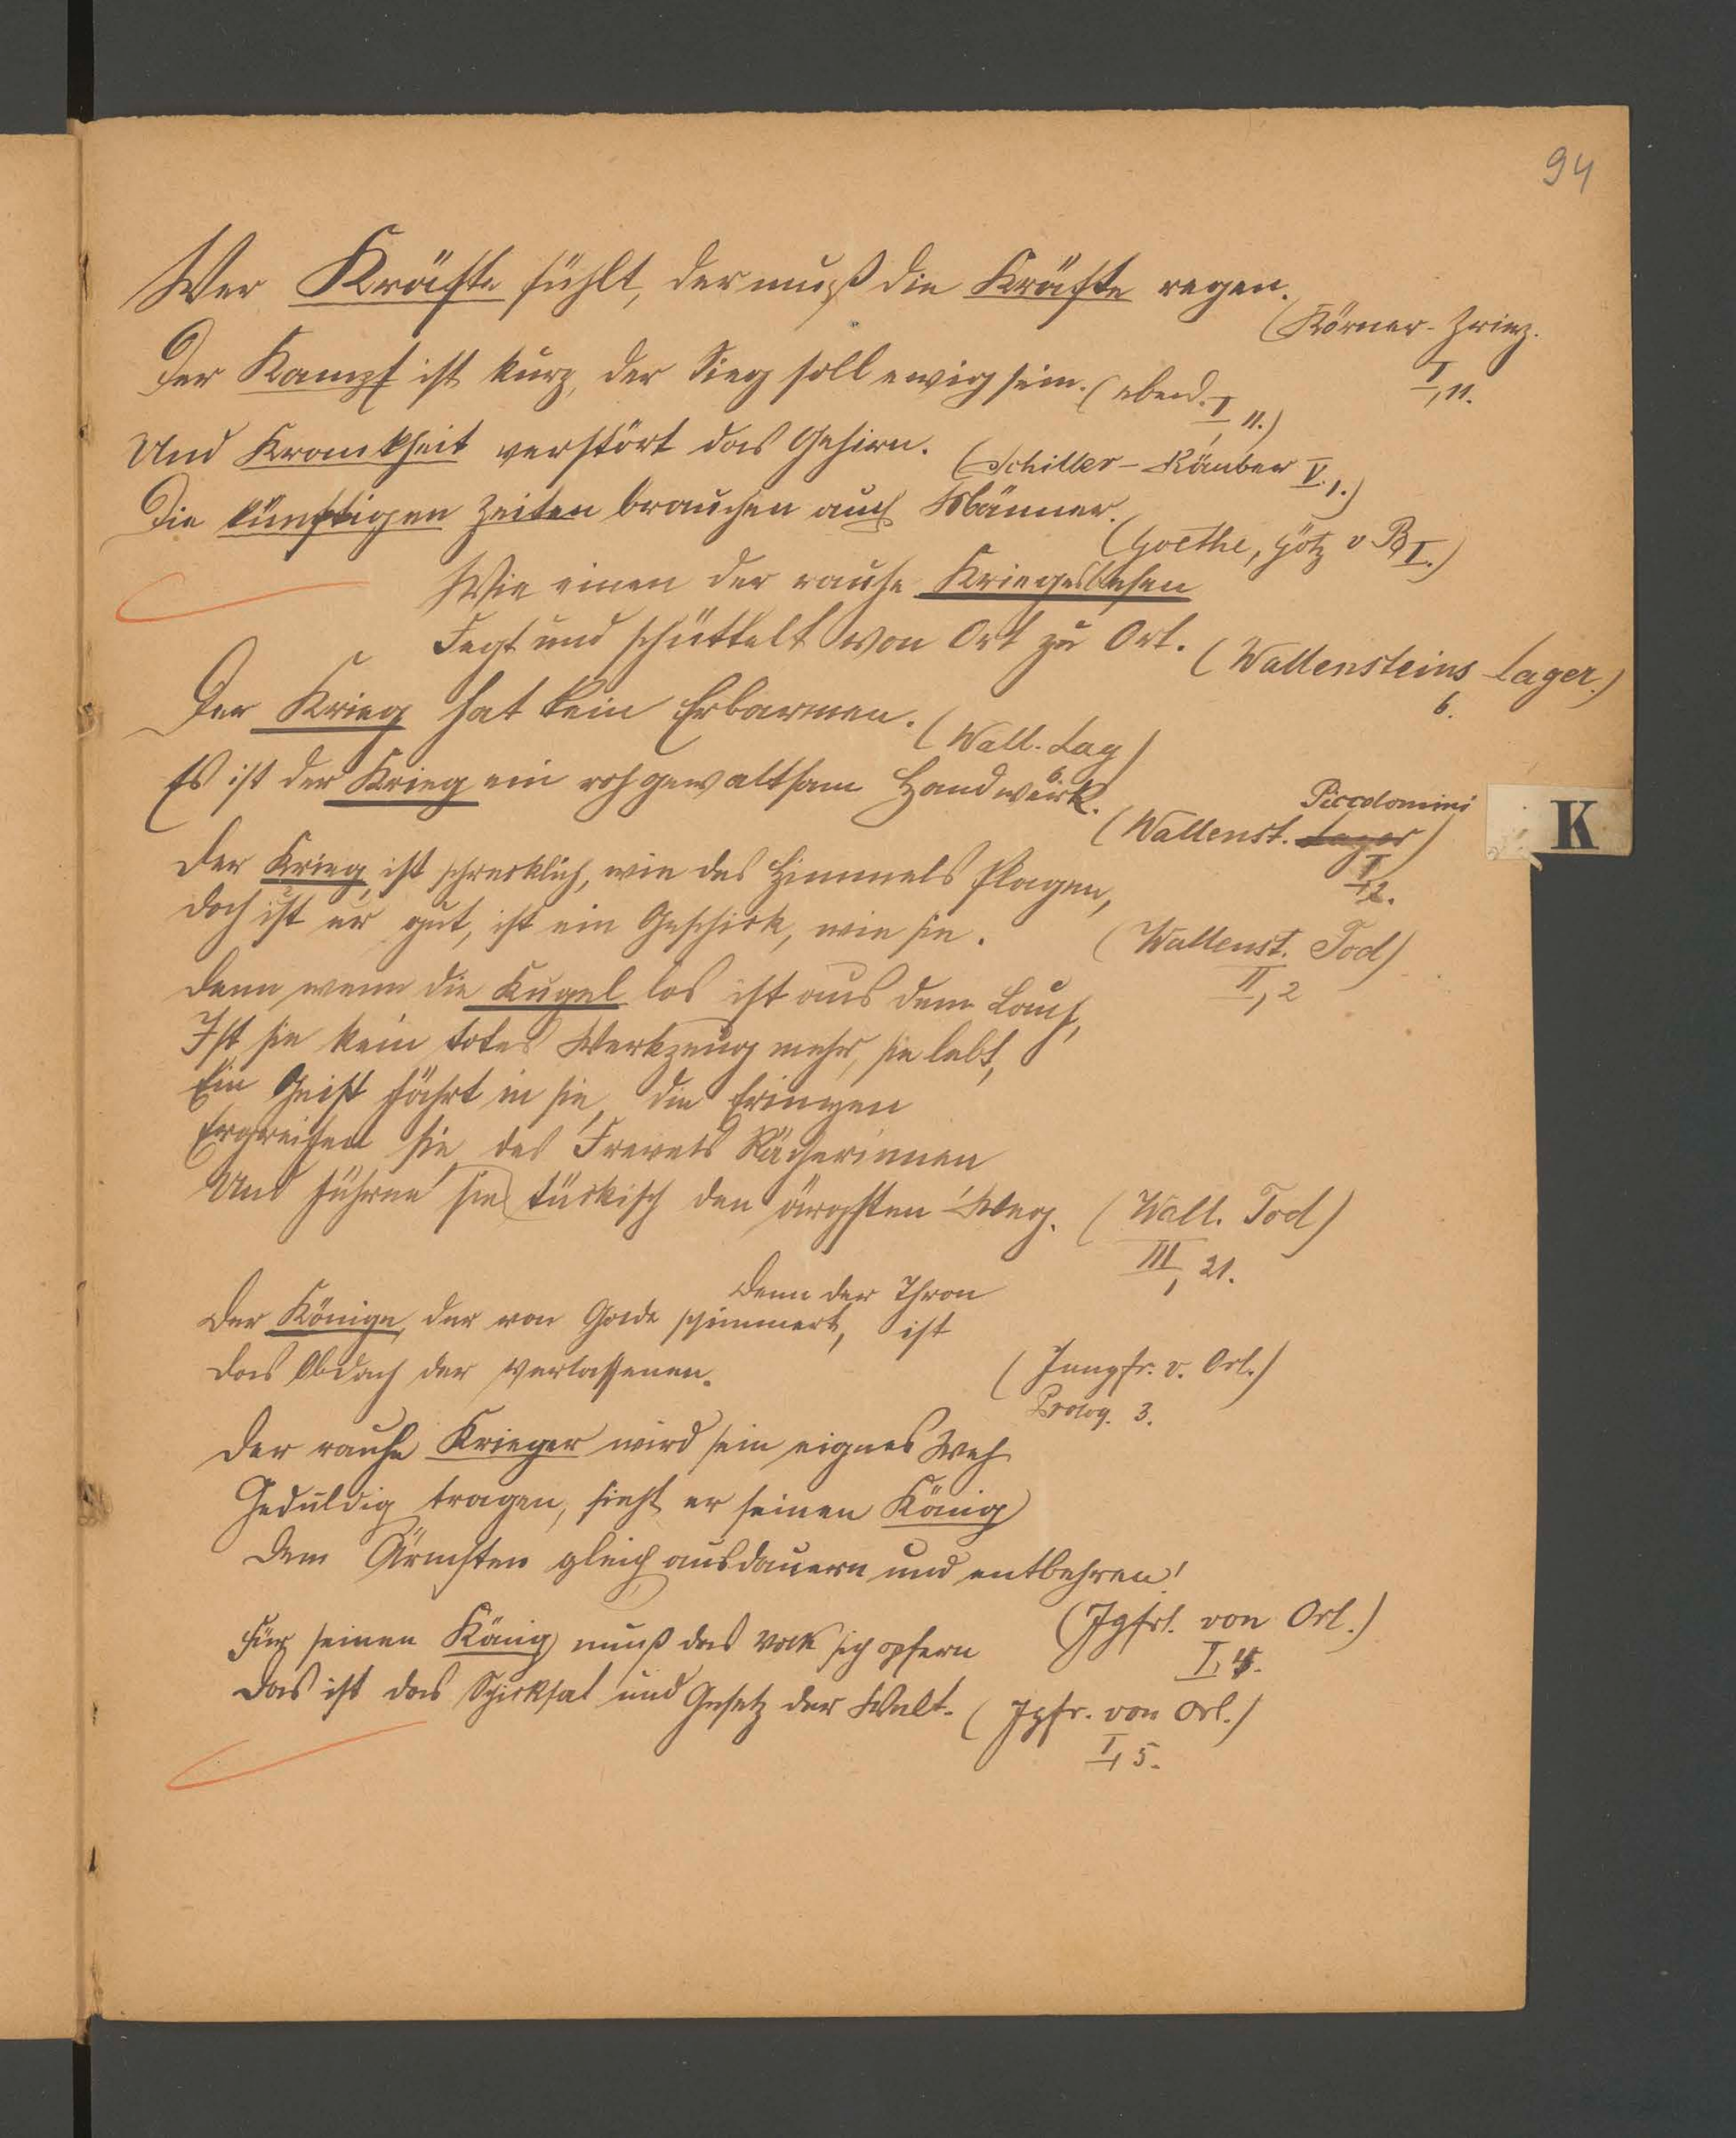 94
Wer Kräfte fühlt, der muß die Kräfte regen.
(Körner-Zriny.
I, 11.
Der Kampf ist kurz, der Sieg soll ewig sein. (ebend. I, 11.)
Und Krankheit verstört das Gehirn. (Schiller - Räuber V. 1.)
Die künftigen Zeiten brauchen auch Männer.
(Goethe, Götz v B I.)
Wie einen der rauhe Kriegesbesen
Fegt und schüttelt von Ort zu Ort. (Wallensteins Lager.)
6.
Der Krieg hat kein Erbarmen. (Wall. Lag)
6.
Es ist der Krieg ein roh gewaltsam Handwerk.
(Wallenst. Lager) Piccolomini
I, 2.
K
Der Krieg ist schrecklich, wie des Himmels Plagen,
Doch ist er gut, ist ein Geschick, wie sie. (Wallenst. Tod)
II, 2
Denn wenn die Kugel los ist aus dem Lauf,
Ist sie kein totes Werkzeug mehr, sie lebt,
Ein Geist fährt in sie, die Erinnyen
Ergreifen sie, des Frevels Rächerinnen
Und führen sie tückisch den ärgsten Weg. (Wall. Tod)
III, 21.
Denn der Thron
Der Könige, der von Golde schimmert, ist
Das Obdach der Verlassenen. (Jungfr. v. Orl.)
Prolog. 3.
Der rauhe Krieger wird sein eignes Weh
Geduldig tragen, sieht er seinen König
Dem Ärmsten gleich ausdauern und entbehren!
(Jgfr. von Orl.)
I, 4.
Für seinen König muß das Volk sich opfern
Das ist das Schicksal und Gesetz der Welt. (Jgfr. von Orl.)
I, 5.